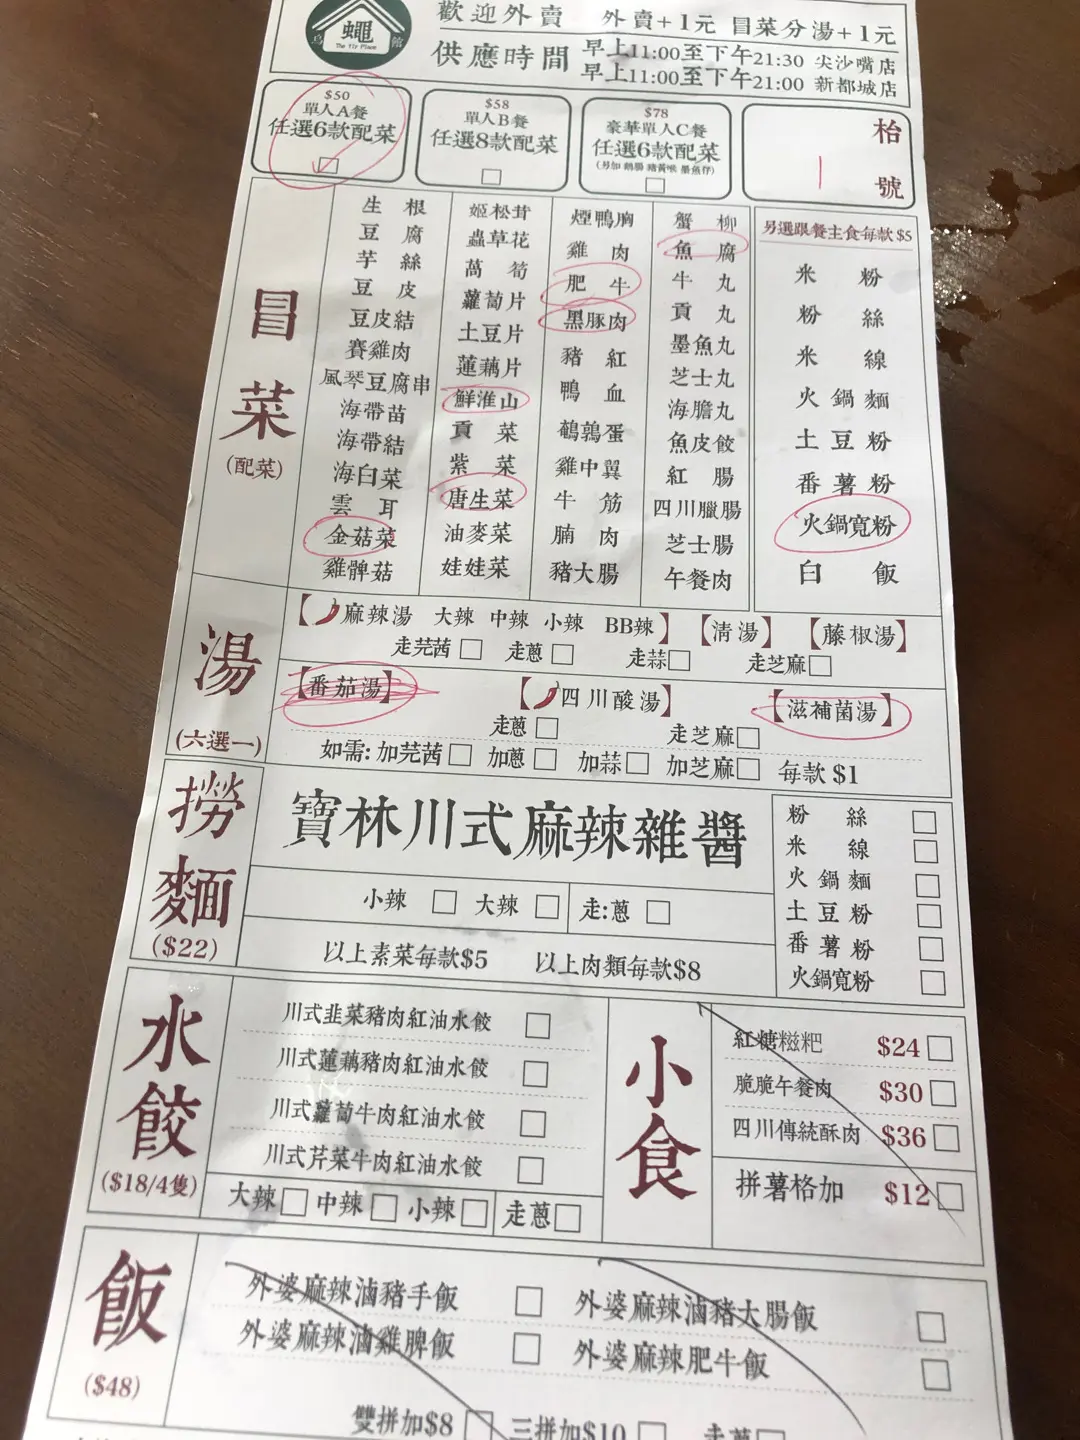 蠅
烏 館
The Yir Place
歡迎外賣 外賣+1元 冒菜分湯+1元
供應時間
早上11:00至下午21:30 尖沙嘴店
早上11:00至下午21:00 新都城店
$50
單人A餐
任選6款配菜
$58
單人B餐
任選8款配菜
$78
豪華單人C餐
任選6款配菜
(另加 鵝腸 豬黃喉 墨魚仔)
枱號
1
冒菜
(配菜)
生根
豆腐
芋絲
豆皮
豆皮結
賽雞肉
風琴豆腐串
海帶苗
海帶結
海白菜
雲耳
金菇菜
雞髀菇
姬松茸
蟲草花
萵筍
蘿蔔片
土豆片
蓮藕片
鮮淮山
貢菜
紫菜
唐生菜
油麥菜
娃娃菜
煙鴨胸
雞肉
肥牛
黑豚肉
豬紅
鴨血
鵪鶉蛋
雞中翼
牛筋
腩肉
豬大腸
蟹柳
魚腐
牛丸
貢丸
墨魚丸
芝士丸
海膽丸
魚皮餃
紅腸
四川臘腸
芝士腸
午餐肉
另選跟餐主食每款$5
米粉
粉絲
米線
火鍋麵
土豆粉
番薯粉
火鍋寬粉
白飯
湯
(六選一)
【麻辣湯 大辣 中辣 小辣 BB辣】【清湯】【藤椒湯】
走芫茜 走蔥 走蒜 走芝麻
【番茄湯】【四川酸湯】【滋補菌湯】
走蔥 走芝麻
如需:加芫茜 加蔥 加蒜 加芝麻 每款$1
撈麵
($22)
寶林川式麻辣雜醬
小辣 大辣 走:蔥
以上素菜每款$5 以上肉類每款$8
粉絲
米線
火鍋麵
土豆粉
番薯粉
火鍋寬粉
水餃
($18/4隻)
川式韭菜豬肉紅油水餃
川式蓮藕豬肉紅油水餃
川式蘿蔔牛肉紅油水餃
川式芹菜牛肉紅油水餃
大辣 中辣 小辣 走蔥
小食
紅糖糍粑 $24
脆脆午餐肉 $30
四川傳統酥肉 $36
拼薯格加 $12
飯
($48)
外婆麻辣滷豬手飯
外婆麻辣滷豬大腸飯
外婆麻辣滷雞脾飯
外婆麻辣肥牛飯
雙拼加$8 三拼加$10 走蔥